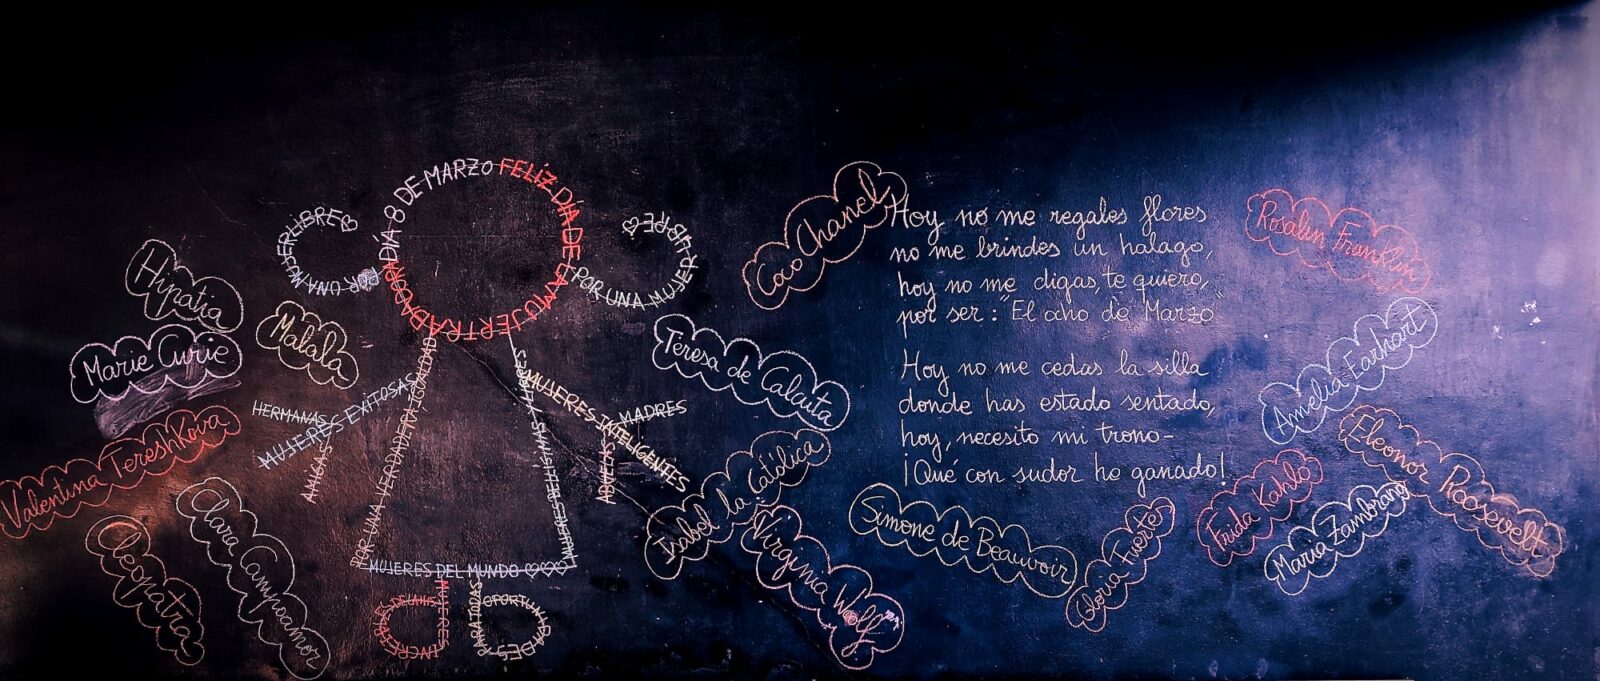 DÍA 8 DE MARZO FELÍZ DÍA DE LA MUJER TRABADORA
POR UNA MUJER LIBRE
POR UNA MUJER LIBRE
Hipatia
Malala
Marie Curie
Valentina Tereshkova
Cleopatra
Clara Campoamor
HERMANAS
MUJERES EXITOSAS
AMIGAS
MUJERES INTELIGENTES
MADRES
ABUELAS
POR UNA VERDADERA IGUALDAD
MUJERES DEL MUNDO
MUJERES BELÍSIMAS
MUJERES INCREÍBLES
OPORTUNIDADES PARA TODAS
Coco Chanel
Teresa de Calcuta
Isabel la Católica
Virginia Woolf
Hoy no me regales flores
no me brindes un halago,
hoy no me digas, te quiero,
por ser: "El ocho de Marzo"
Hoy no me cedas la silla
donde has estado sentado,
hoy, necesito mi trono-
¡Qué con sudor he ganado!
Simone de Beauvoir
Gloria Fuertes
Rosalin Franklin
Amelia Earhart
Eleonor Roosevelt
Frida Kahlo
María Zambrano